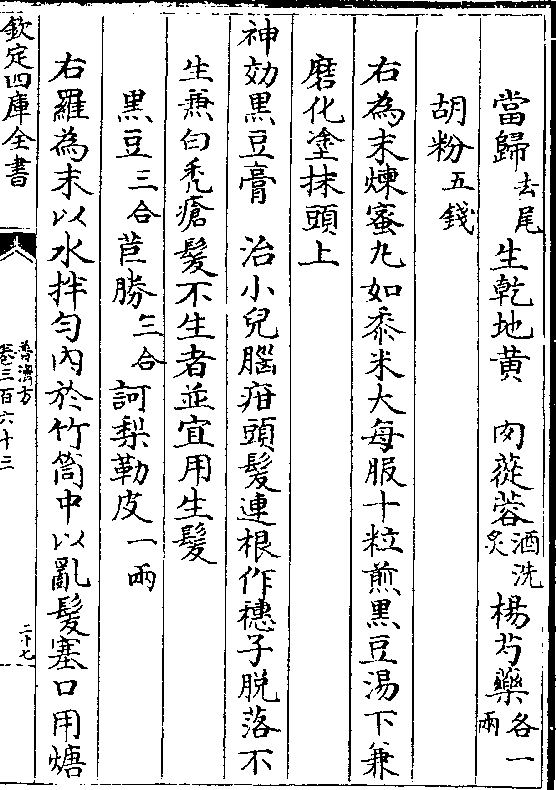 當歸去尾 生乾地黄 肉蓯蓉酒洗炙 楊芍藥各一兩
胡粉五錢
右為末煉蜜丸如黍米大每服十粒煎黑豆湯下兼
磨化塗抹頭上
神効黒豆膏 治小兒腦疳頭髮連根作穗子脱落不
生焦白禿瘡髮不生者並宜用生髮
黒豆三合 苣勝三合 訶梨勒皮一兩
右羅為末以水拌勻內於竹筒中以亂髮塞口用煻
欽定四庫全書
普濟方
卷三百六十三
二十七